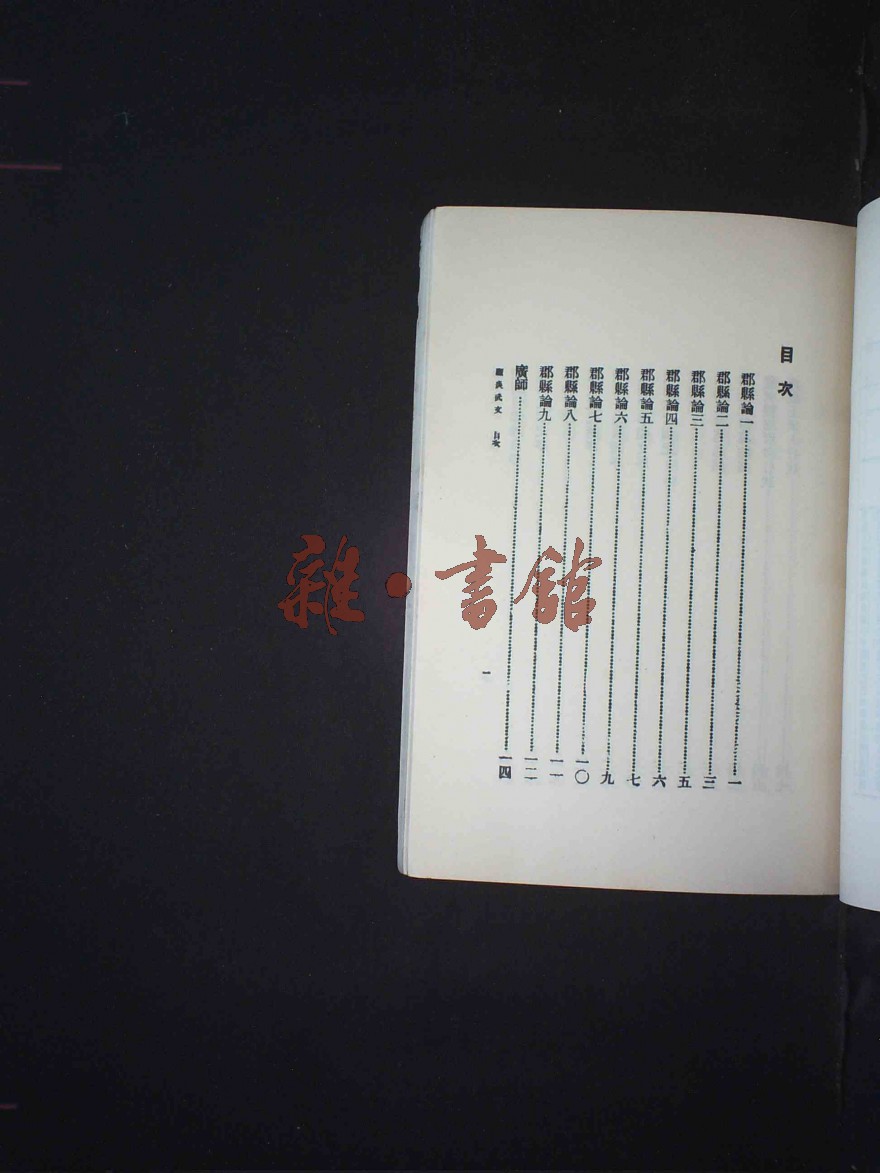 目次
郡縣論一……一
郡縣論二……三
郡縣論三……五
郡縣論四……六
郡縣論五……七
郡縣論六……九
郡縣論七……一〇
郡縣論八……一一
郡縣論九……一二
廣師……一四
顧炎武文 目次
一
雜·書館